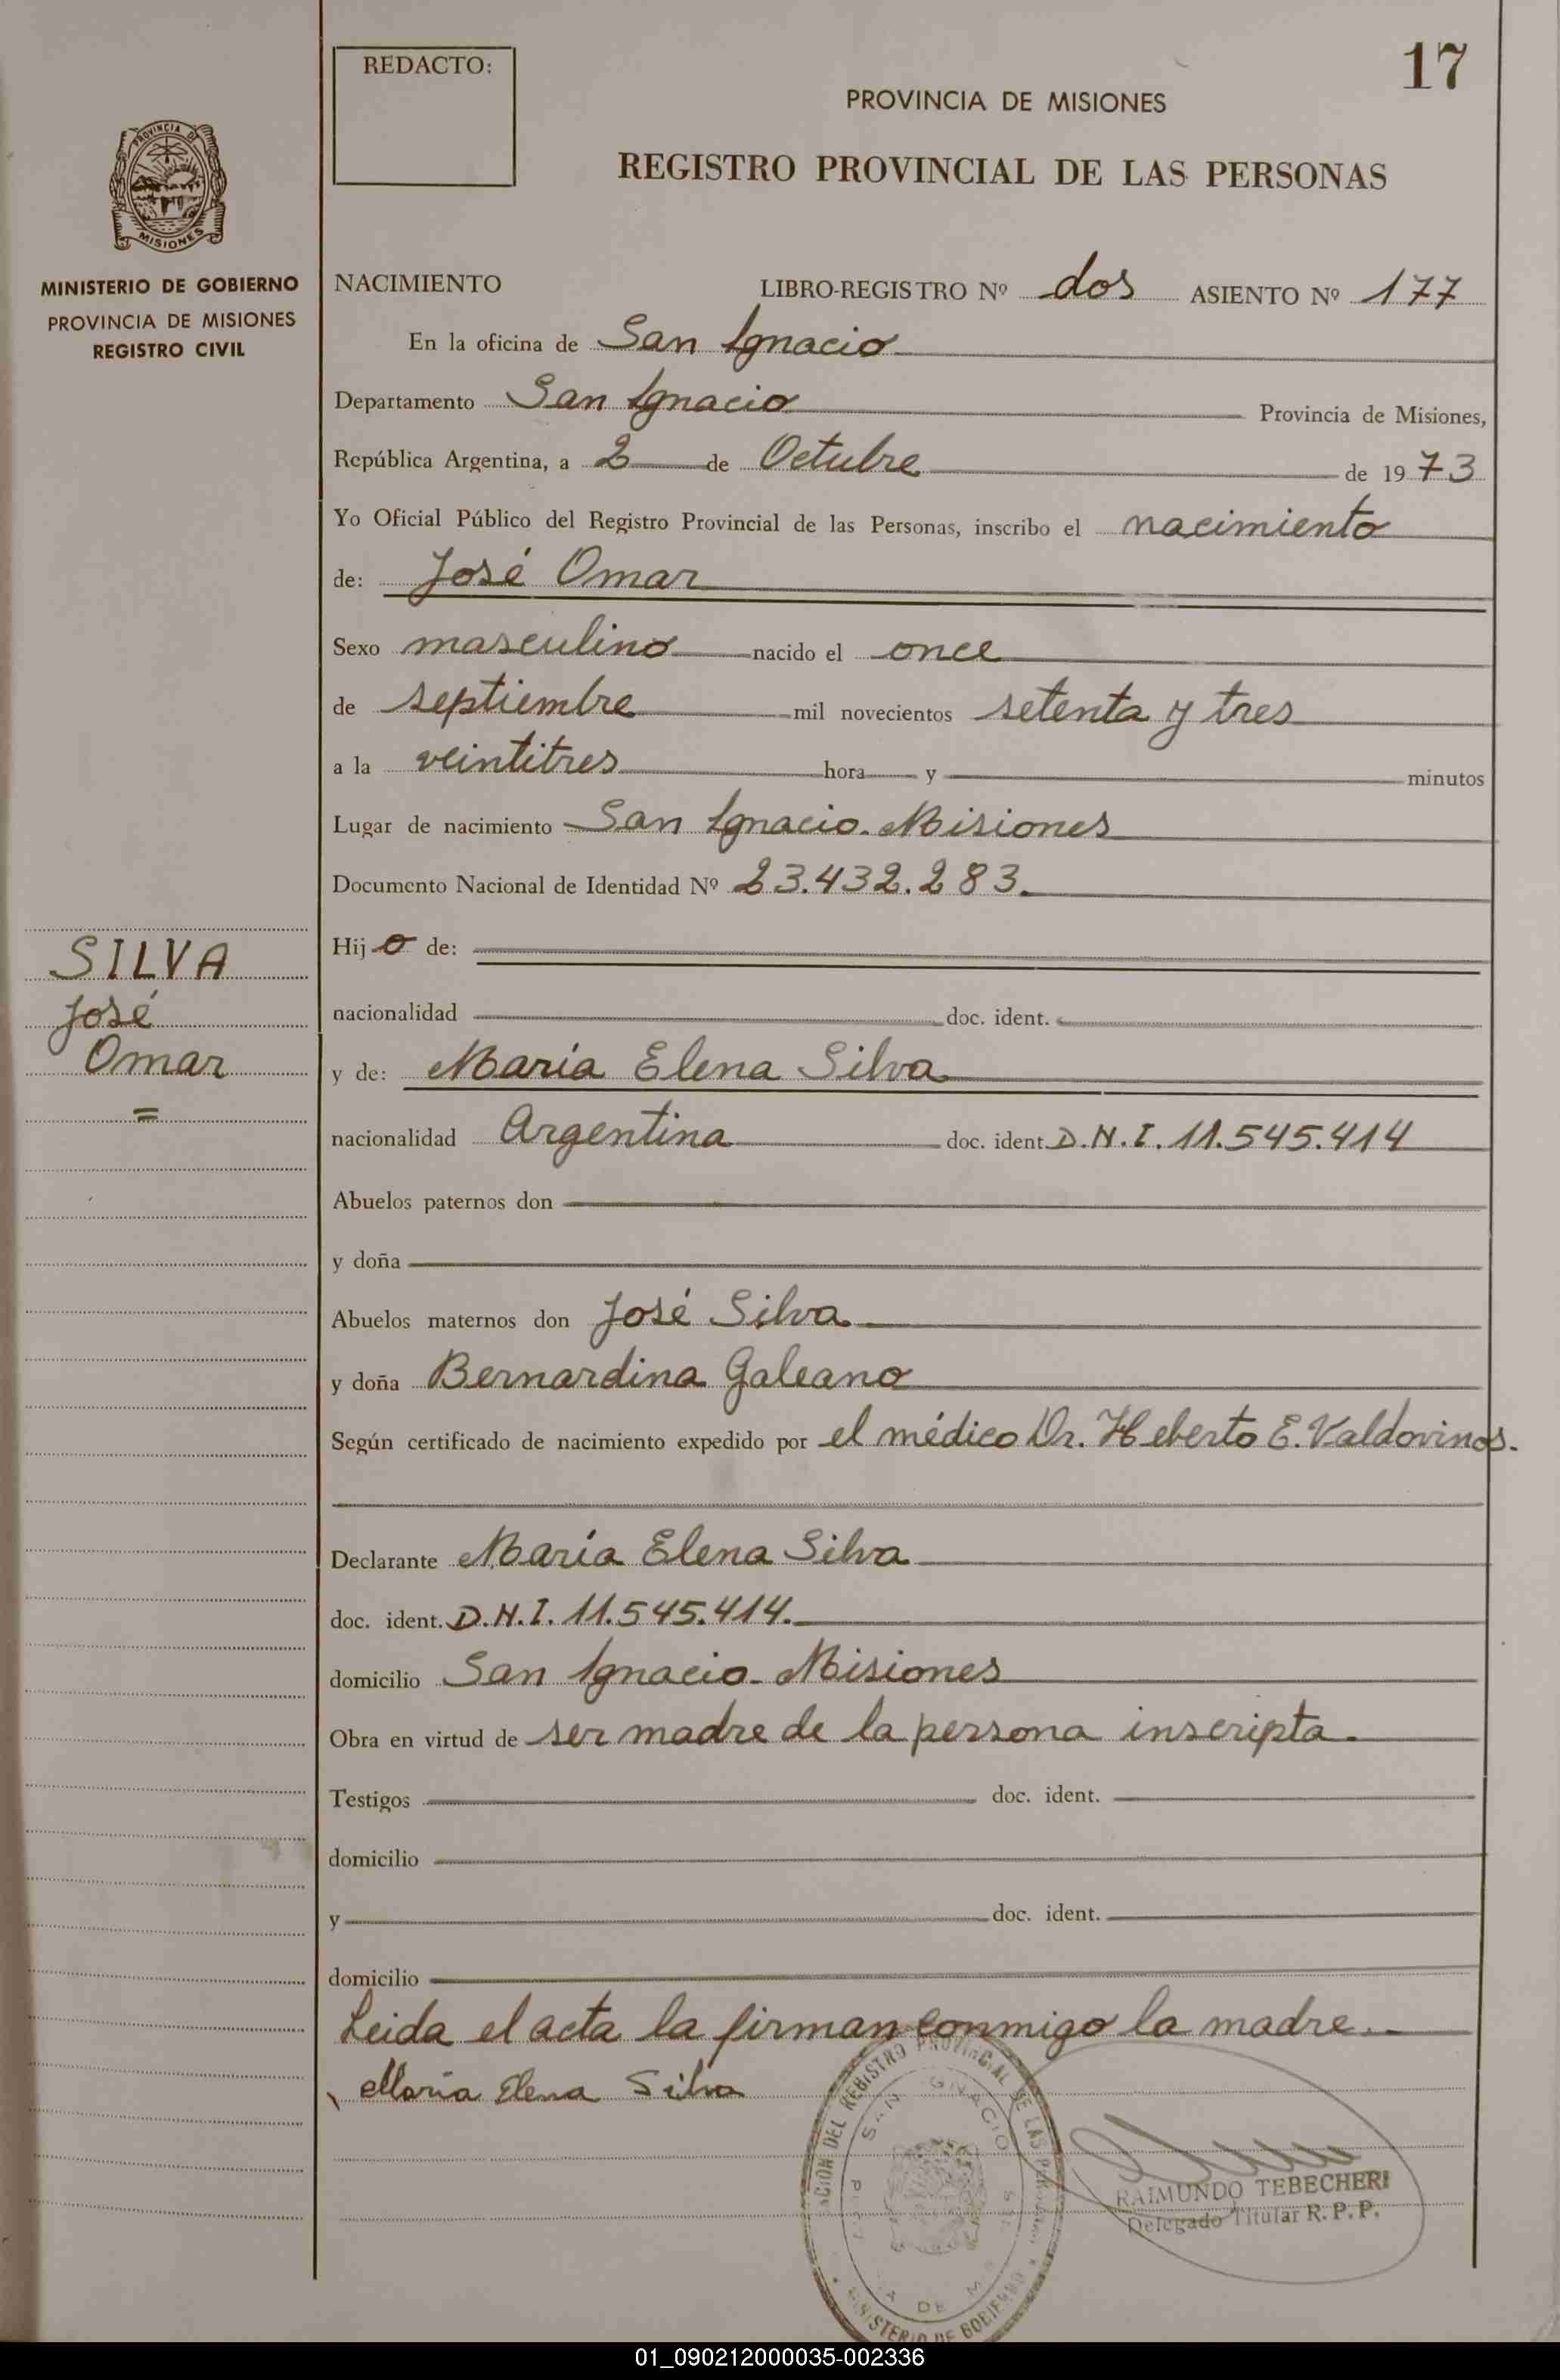 REDACTO:
17
PROVINCIA DE MISIONES
REGISTRO PROVINCIAL DE LAS PERSONAS
PROVINCIA DE
MISIONES
MINISTERIO DE GOBIERNO
PROVINCIA DE MISIONES
REGISTRO CIVIL
NACIMIENTO LIBRO-REGISTRO Nº dos ASIENTO Nº 177
En la oficina de San Ignacio
Departamento San Ignacio Provincia de Misiones,
República Argentina, a 2 de Octubre de 1973
Yo Oficial Público del Registro Provincial de las Personas, inscribo el nacimiento
de: José Omar
Sexo masculino nacido el once
de septiembre mil novecientos setenta y tres
a la veintitres hora y minutos
Lugar de nacimiento San Ignacio. Misiones
Documento Nacional de Identidad Nº 23.432.283.
SILVA
José
Omar
=
Hijo de:
nacionalidad doc. ident.
y de: María Elena Silva
nacionalidad Argentina doc. ident. D.N.I. 11.545.414
Abuelos paternos don
y doña
Abuelos maternos don José Silva
y doña Bernardina Galeano
Según certificado de nacimiento expedido por el médico Dr. Heberto E. Valdovinos.
Declarante María Elena Silva
doc. ident. D.N.I. 11.545.414.
domicilio San Ignacio - Misiones
Obra en virtud de ser madre de la persona inscripta.
Testigos doc. ident.
domicilio
y doc. ident.
domicilio
Leida el acta la firman conmigo la madre.
María Elena Silva
DEL REGISTRO PROVINCIAL DE LAS
SAN IGNACIO
DE
MINISTERIO DE GOBIERNO
RAIMUNDO TEBECHERI
Delegado Titular R. P. P.
01_090212000035-002336